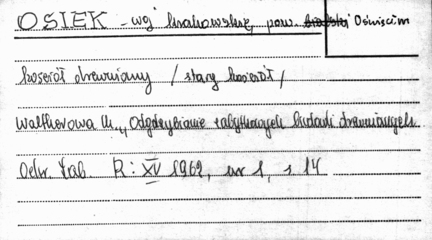 OSIEK - woj. krakowskie, pow. Oświęcim
kościół drewniany /stary kościół/
Waltherowa M., Odgrzybianie zabytkowych budowli drewnianych
Ochr. Zab. R: XV 1962, nr 1, s 14